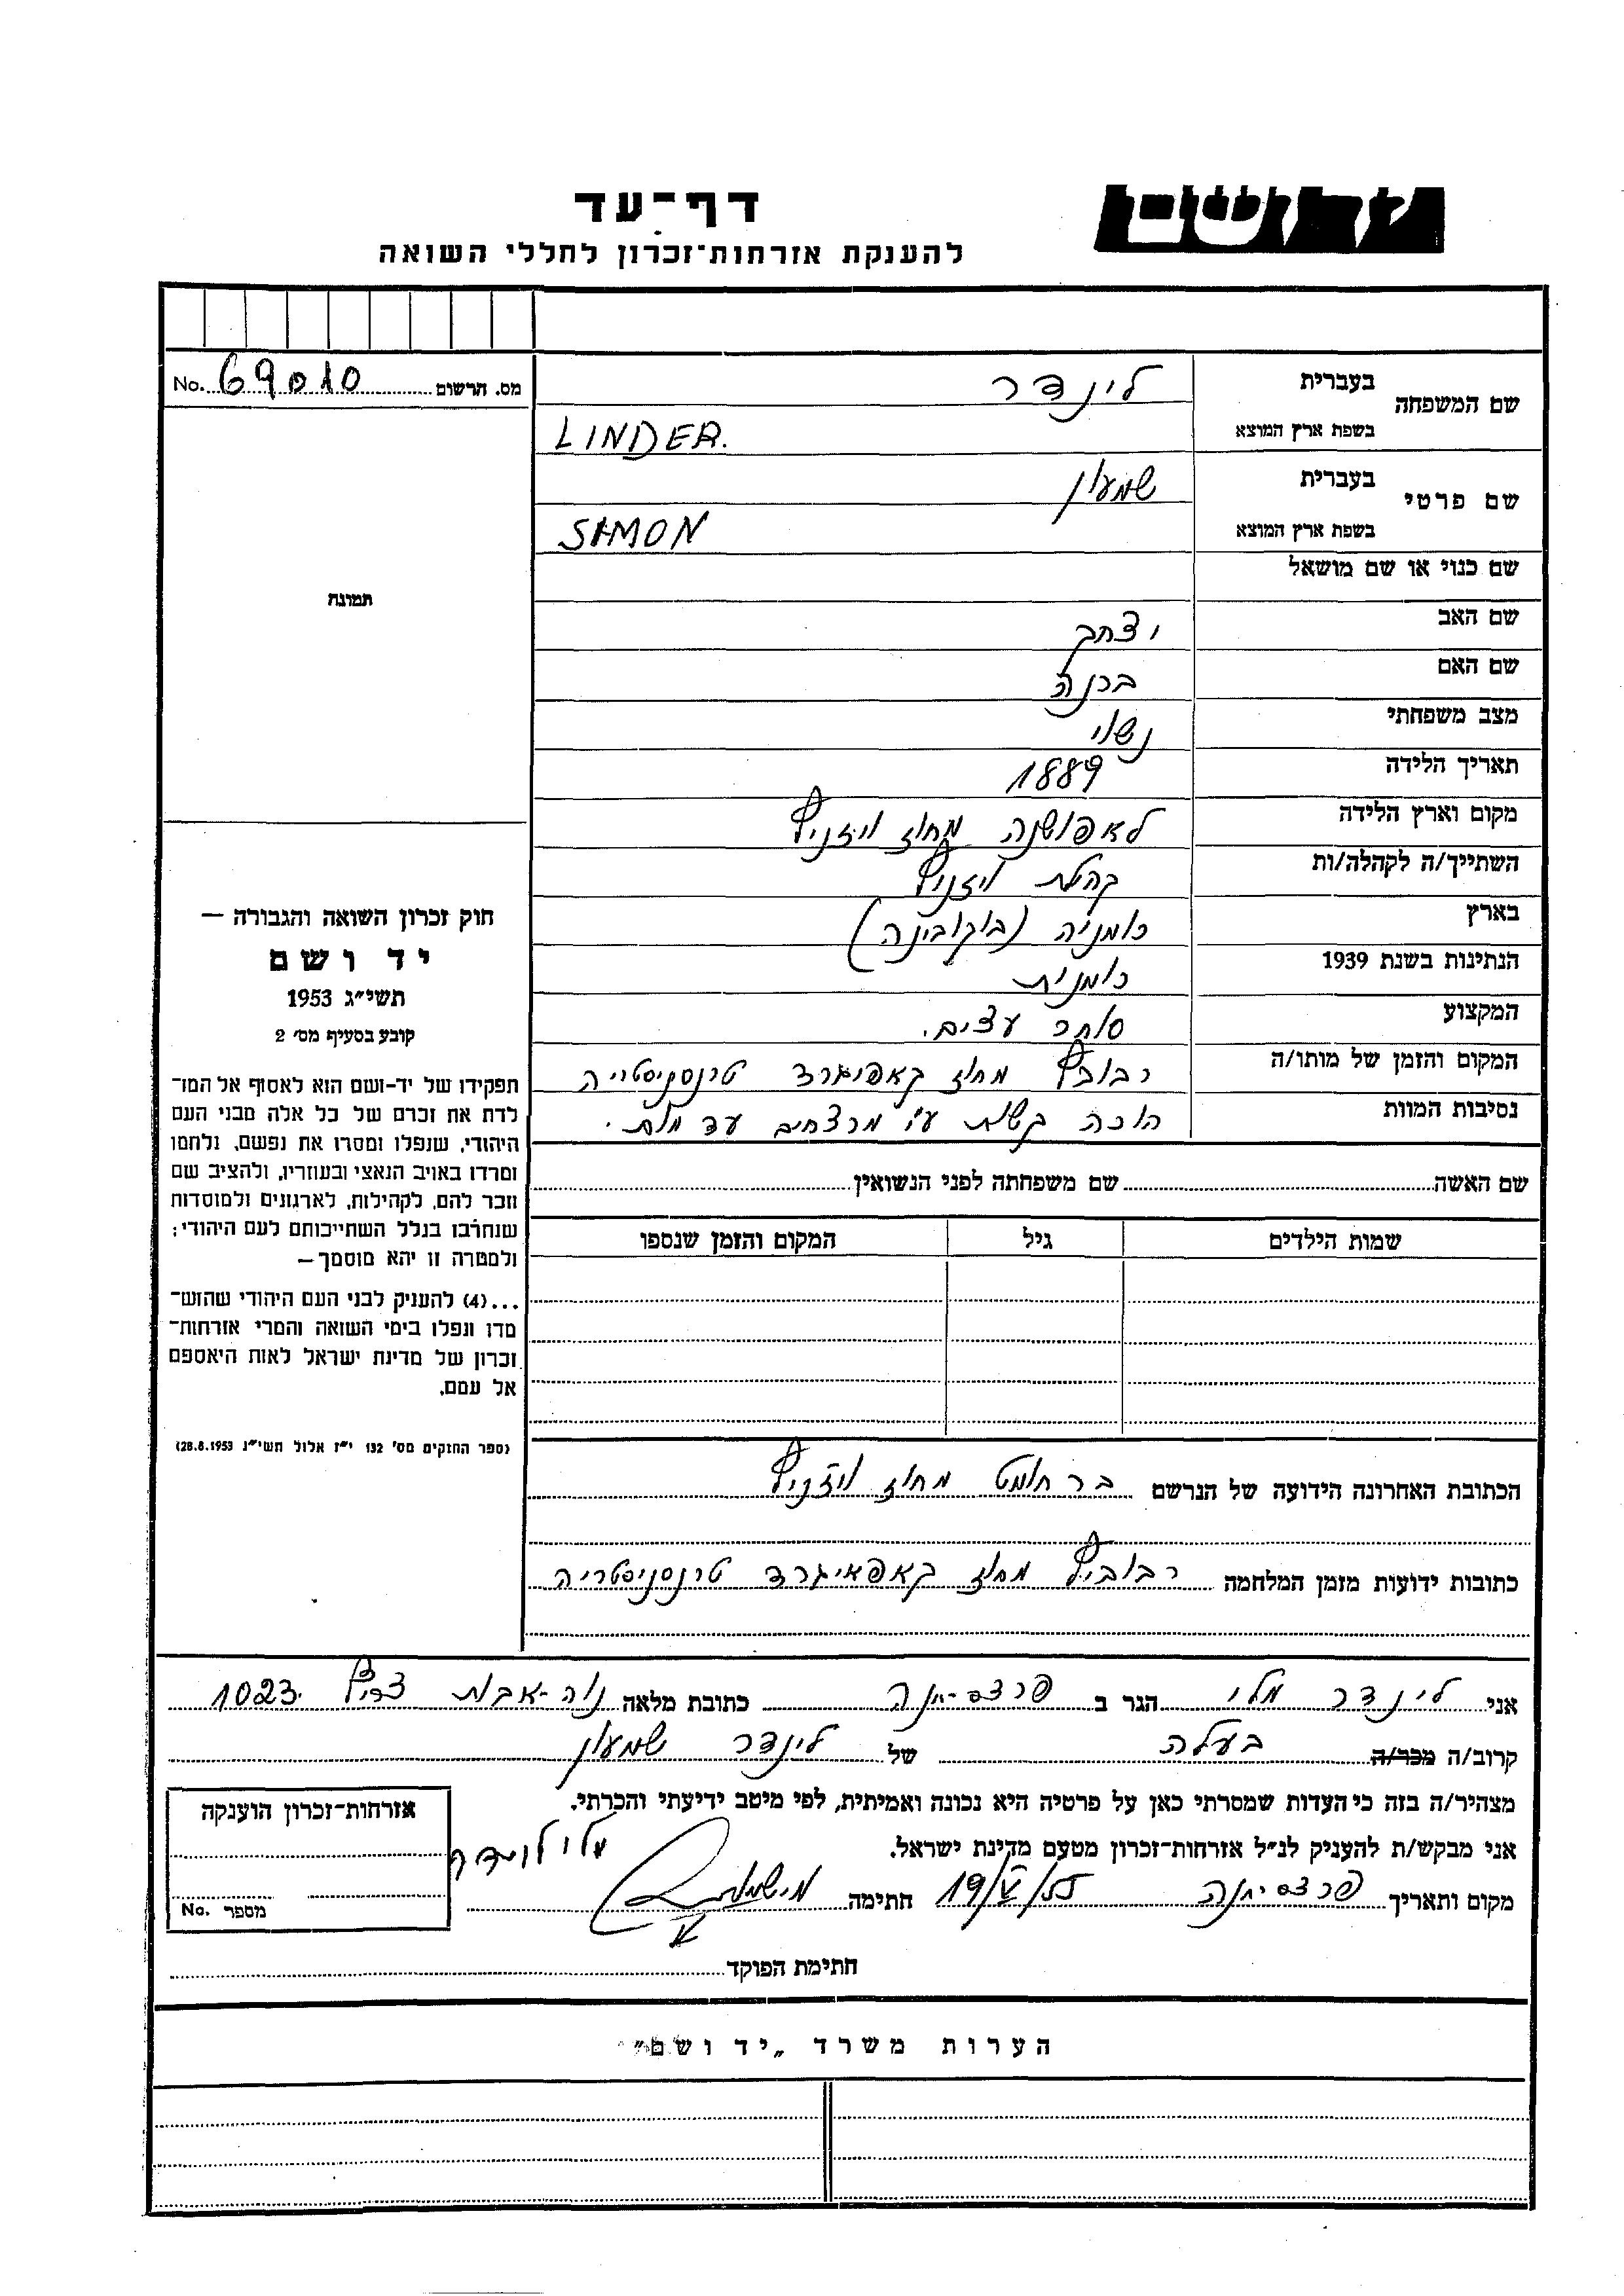 יד ושם
דף־עד
להענקת אזרחות־זכרון לחללי השואה
מס. הרשום 69010 No.
שם המשפחה
בעברית לינדר
בשפת ארץ המוצא LINDER.
שם פרטי
בעברית שמעון
בשפת ארץ המוצא SAMON
שם כנוי או שם מושאל
שם האב יצחק
שם האם ברנה
מצב משפחתי נשוי
תאריך הלידה 1889
מקום וארץ הלידה לאפושנה מחוז ויזניץ
השתייך/ה לקהלה/ות קהלת ויזניץ
בארץ רומניה (בוקובינה)
הנתינות בשנת 1939 רומנית
המקצוע סוחר עצים.
המקום והזמן של מותו/ה קאפיגרד מחוז טרנסניסטריה
נסיבות המוות הוכה קשות ע"י מרצחים עד מות.
שם האשה שם משפחתה לפני הנשואין
שמות הילדים גיל המקום והזמן שנספו
הכתובת האחרונה הידועה של הנרשם מחוז ויזניץ
כתובות ידועות מזמן המלחמה מחוז קאפאיגרד טרנסניסטריה
תמונה
חוק זכרון השואה והגבורה —
יד ושם
תשי״ג 1953
קובע בסעיף מס׳ 2
תפקידו של יד־ושם הוא לאסוף אל המו־
לדת את זכרם של כל אלה מבני העם
היהודי, שנפלו ומסרו את נפשם, נלחמו
ומרדו באויב הנאצי ובעוזריו, ולהציב שם
וזכר להם, לקהילות, לארגונים ולמוסדות
שנחרבו בגלל השתייכותם לעם היהודי;
ולמטרה זו יהא מוסמך —
...(4) להעניק לבני העם היהודי שהוש־
מדו ונפלו בימי השואה והמרי אזרחות־
זכרון של מדינת ישראל לאות היאספם
אל עמם.
(ספר החוקים מס׳ 132 י״ז אלול תשי״ג 28.8.1953)
אני לינדר מלי הגר ב פרדס־חנה כתובת מלאה נוה־אבות צריף 1023
קרוב/ה מכר/ה בעלה של לינדר שמעון
מצהיר/ה בזה כי העדות שמסרתי כאן על פרטיה היא נכונה ואמיתית, לפי מיטב ידיעתי והכרתי.
אני מבקש/ת להעניק לנ״ל אזרחות־זכרון מטעם מדינת ישראל.
מקום ותאריך פרדס־חנה 19/V/55 חתימה
חתימת הפוקד
אזרחות־זכרון הוענקה
מספר No.
הערות משרד „יד ושם״